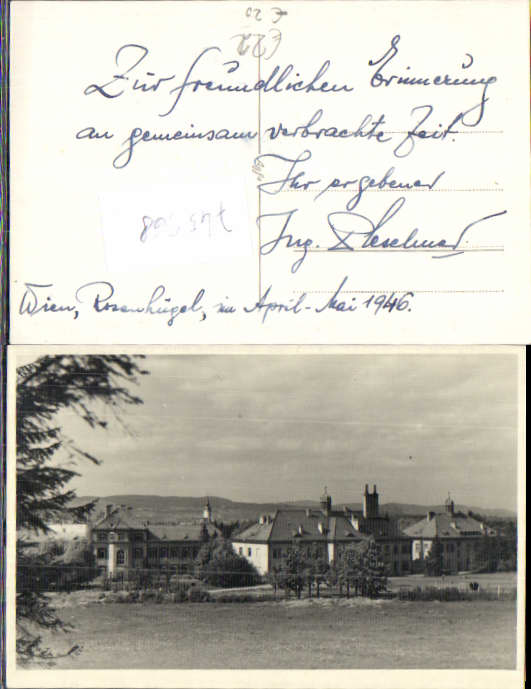 € 20
€22
Zur freundlichen Erinnerung
an gemeinsam verbrachte Zeit.
Ihr ergebener
Ing.
Wien, Rosenhügel, im April-Mai 1946.